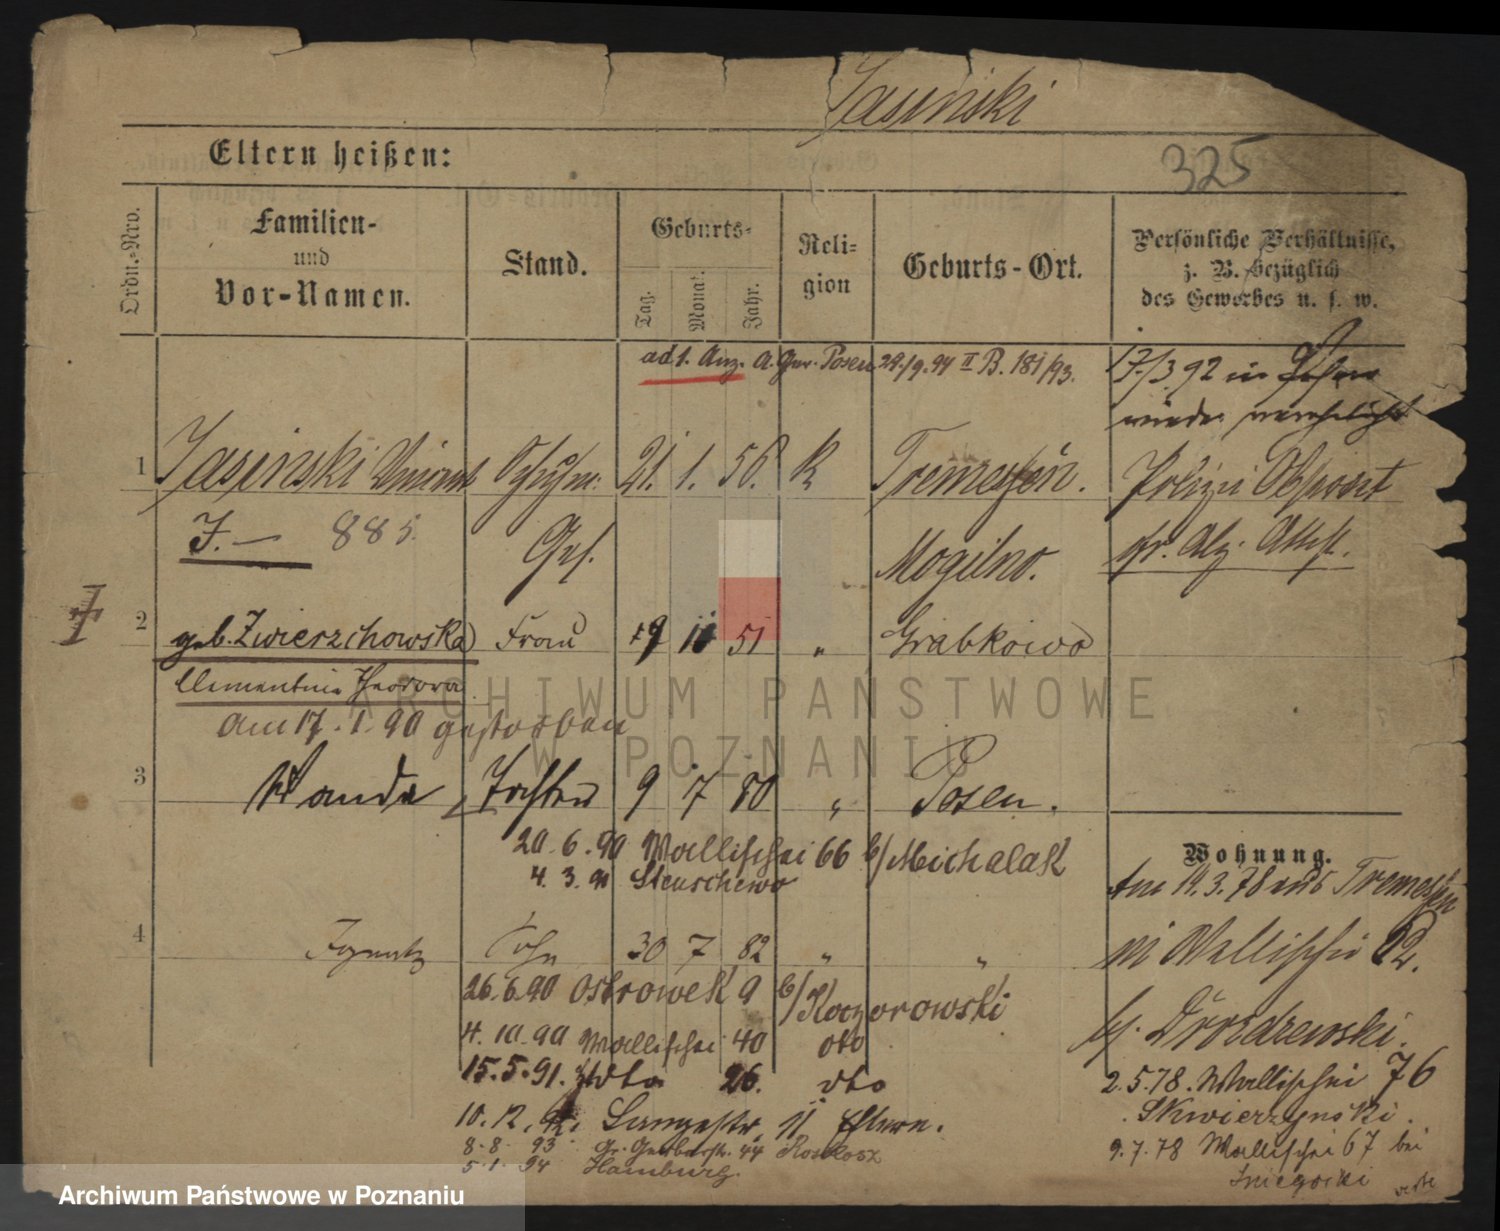 Jasinski
Eltern heißen:
325
Ordn.-Nro.
Familien-
und
Vor-Namen.
Stand.
Geburts-
Tag.
Monat.
Jahr.
Reli-
gion
Geburts-Ort.
Persönliche Verhältnisse,
z. B. bezüglich
des Gewerbes u. s. w.
ad 1. Anz. A. Ger. Posen 29./9. 94 II B. 181/93.
17./3. 92 in
wieder verehelicht
1 Jasinski Vincent 21. 1. 56. K Tremessen.
J. — 885.
Ges. Mogilno.
2 geb. Zwierzchowska Frau 19 11 51 " Grabkowo
Clementine Theodora
am 17. 1. 90 gestorben
3 Wanda Tochter 9 7 80 " Posen.
20. 6. 90 Wallischei 66 b/Michalak
4. 3. 91 Stenschewo
Wohnung.
Am 14. 3. 78 aus Tremessen
4 Ignatz Sohn 30 7 82 " "
Wallischei
26. 6. 90 Ostrowek 9 b/Koczorowski
4. 10. 90 Wallischei 40 dto
bei Drozdzewski.
15. 5. 91. dto 26. dto
2. 5. 78. Wallischei 76
10. 12. Langestr. 11 Eltern.
Skwierzynski.
8. 8. 93 Gr. Gerberstr. 44
9. 7. 78 Wallischei 67 bei
5. 1. 94 Hamburg.
Sniegocki verte
ARCHIWUM PAŃSTWOWE
W POZNANIU
Archiwum Państwowe w Poznaniu